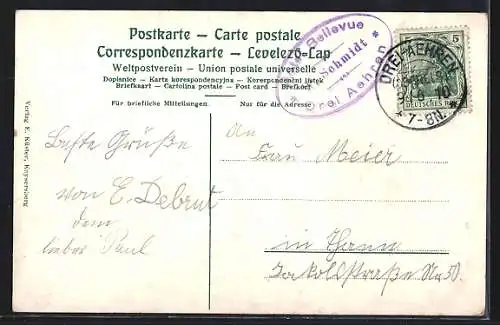 Postkarte – Carte postale
Correspondenzkarte – Levelező-Lap
Weltpostverein – Union postale universelle
Dopisnice – Karta korespondencyjna – Korespondenční lístek
Briefkart – Cartolina postale – Post card – Brefkort
Für briefliche Mitteilungen.
Nur für die Adresse
Bellevue
Schmidt
Drei Aehren
DREI AEHREN
10
* 7-8N. *
5
DEUTSCHES REICH
Beste Grüße
von E. Debrut
dem
lieber Paul
An
Frau Meier
in Thann
Nr. 50.
Verlag E. Kaysersberg